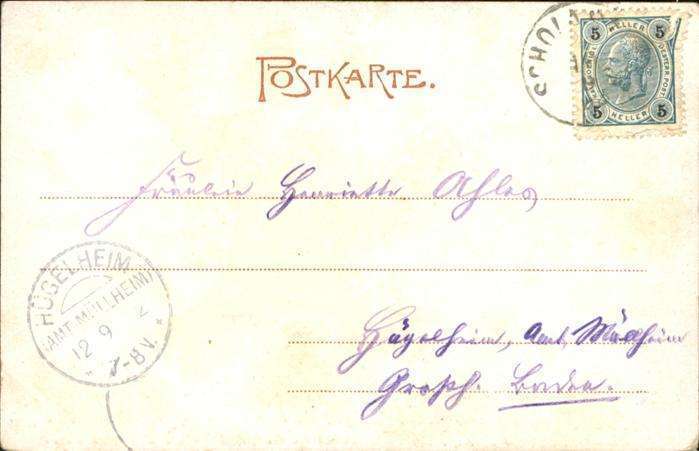 POSTKARTE.
SCHOL
5 HELLER 5
5 HELLER 5
Fräulein Henriette Ahles
HÜGELHEIM
(AMT MÜLLHEIM)
12 9 2
7-8V.
Hügelheim, Amt Müllheim
Großh. Baden.